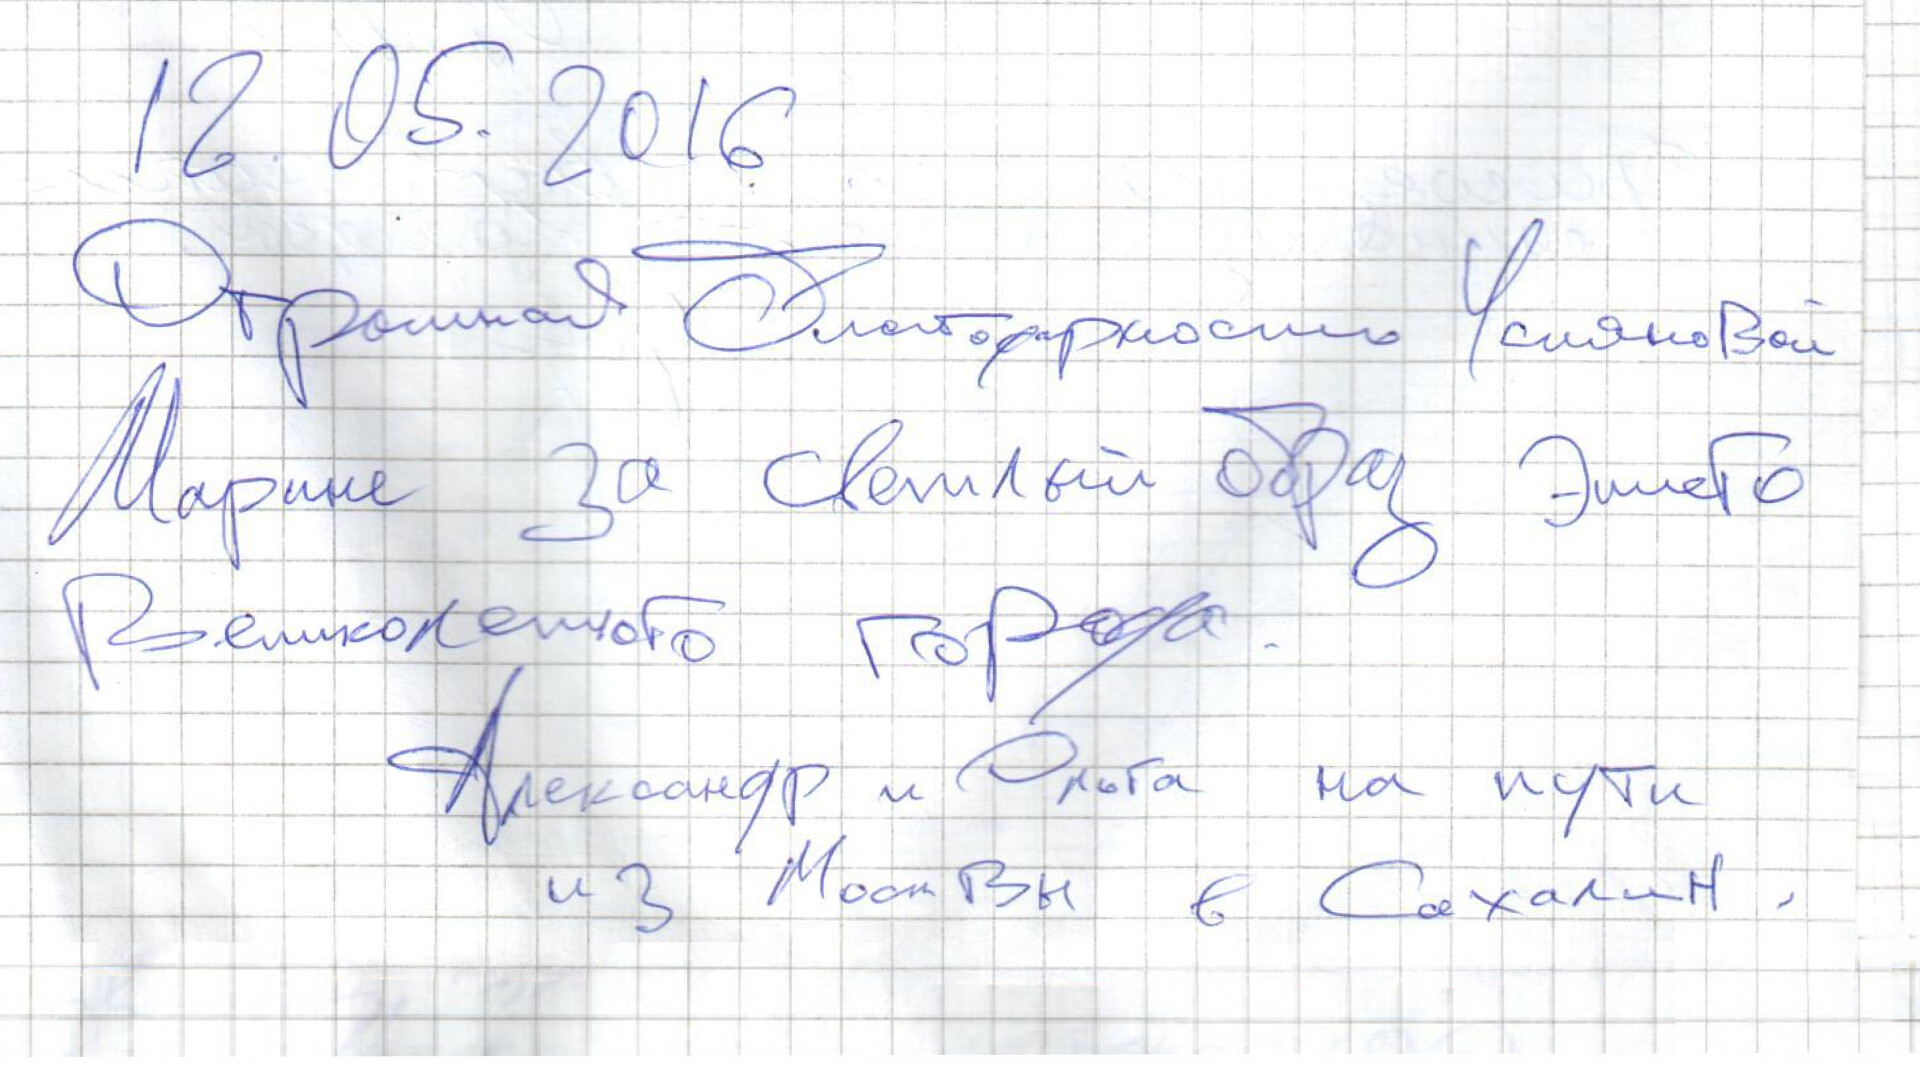 12.05.2016
Огромная благодарность Усмановой
Марине за светлый образ этого
Великолепного города.
Александр и Ольга на пути
из Москвы в Сахалин.